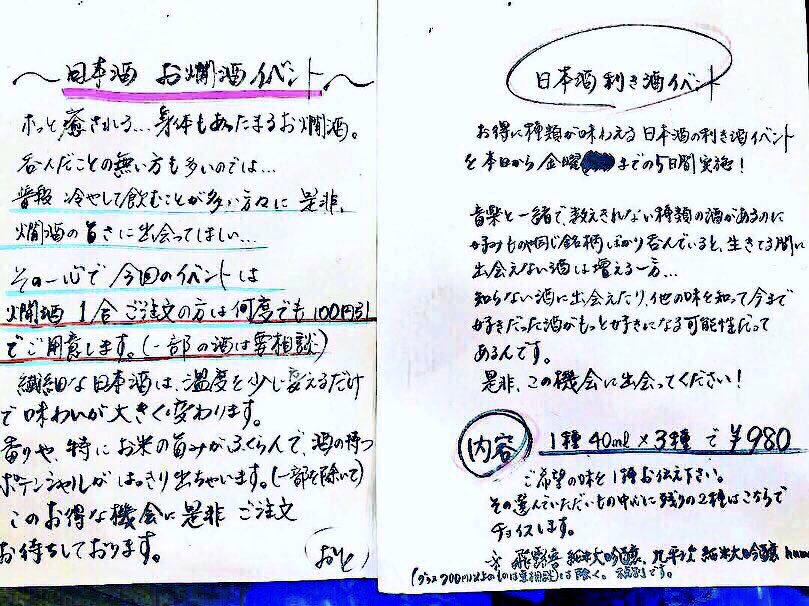 〜日本酒 お燗酒イベント〜
ホッと癒される…身体もあったまるお燗酒。
呑んだことの無い方も多いのでは…
普段 冷やして飲むことが多い方々に 是非、
燗酒の旨さに出会ってほしい…
その一心で 今回のイベントは
燗酒 1合 ご注文の方は何度でも100円引
でご用意します。(一部の酒は要相談)
繊細な日本酒は、温度を少し変えるだけ
で味わいが大きく変わります。
香りや、特にお米の旨みがふくらんで、酒の持つ
ポテンシャルがはっきり出ちゃいます。(一部を除いて)
このお得な機会に是非 ご注文
お待ちしております。
日本酒 利き酒イベント
お得に種類が味わえる 日本酒の利き酒イベント
を本日から 金曜 までの5日間実施!
音楽と一緒で、数えきれない種類の酒があるのに
好みもの同じ銘柄ばかり呑んでいると、生きてる間に
出会えない酒は増える一方…
知らない酒に出会えたり、他の味を知って今まで
好きだった酒がもっと好きになる可能性だって
あるんです。
是非、この機会に出会ってください!
内容 1種 40ml×3種 で ¥980
ご希望の味を1種お伝え下さい。
その選んでいただいたもの中心に残りの2種はこちらで
チョイスします。
飛露喜 純米大吟醸、九平次 純米大吟醸